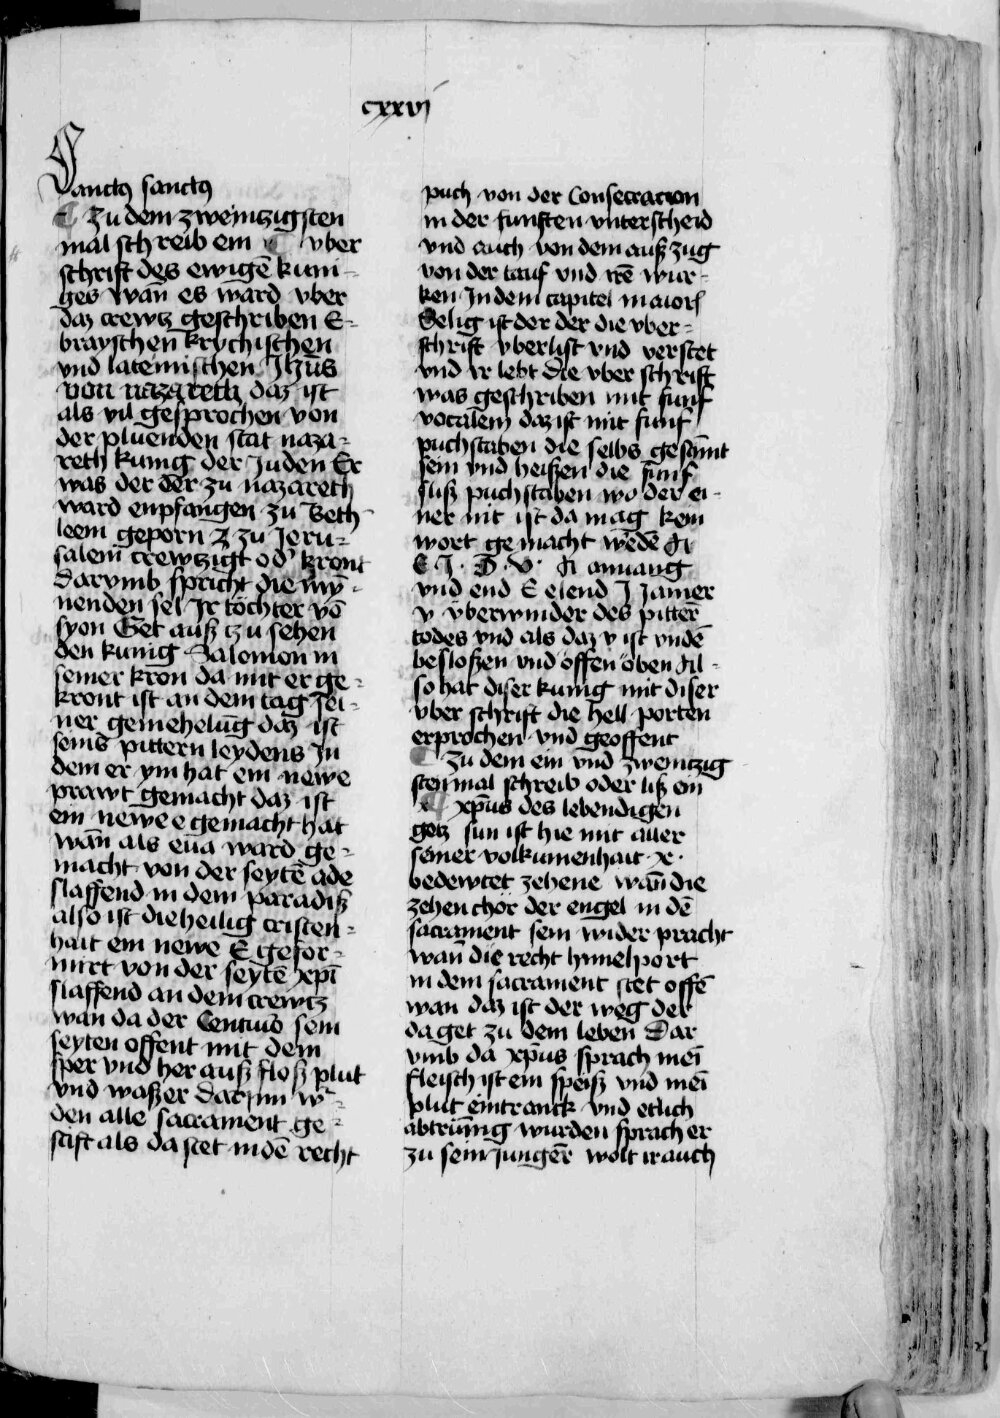 cxxvj
Sanctꝰ sanctꝰ
¶ Zu dem zweintzigsten
mal schreib ein ¶ vber
schrift des ewigē kuni-
ges wān es ward vber
daz crewtz geschriben E-
brayschen krychischen
vnd lateinischen Jhūs
von nazareth daz ist
als vil gesprochen von
der pluenden stat naza-
reth kunig der Juden Er
was der der zu nazareth
ward enpfangen zu Beth-
leem geporn Z zu Jeru-
salem̄ crewtzigt odʾ kront
darvmb spricht die my̅-
nenden sel Jr töchter vō
syon Get auß tzu sehen
den kunig Salomon in
seiner kron da mit er ge-
kront ist an dem tag sei-
ner gemehelūg daz ist
seins pittern leydens Jn
dem er ym hat ein newe
prawt gemacht daz ist
ein newe e gemacht hat
wān als eūa ward ge-
macht von der seytē ade
slaffend in dem paradiß
also ist die heilig cristen-
hait ein newe E gefor-
mirt von der seytē xp̄i
slaffend an dem crewtz
wan da der Centurio sein
seyten offent mit dem
sper vnd her auß floß plut
vnd waßer darjnn w̄-
den alle sacrament ge-
stift als da stet in dē recht
puch von der Consecracion
in der funften vnterscheid
vnd auch von dem auß zug
von der tauf vnd irē wur-
ken Jn dem capitel maiorſ
Selig ist der der die vber-
schrift vberlist vnd verstet
vnd ir lebt die vber schrift
was geschriben mit funf
vocalem daz ist mit funf
puchstaben die selbs gestimt
sein vnd heißen die funf
suß puchstaben wo der ei-
ner nit ist da mag kein
wort gemacht wedē A
E · J · O · V · A anuang
vnd end E elend J Jamer
v vberwinder des pitterē
todes vnd als daz v ist vndē
besloßen vnd offen oben Al-
so hat diser kunig mit diser
vber schrift die hell porten
erprochen vnd geoffent
¶ Zu dem ein vnd zweintzig
sten mal schreib oder liß ein
x ¶ xp̄us des lebendigen
gotz sun ist hie mit aller
seiner volkumenhait · x ·
bedewtet zehene wān die
zehen chör der engel in dē
sacrament sein wider pracht
wān die recht himelport
in dem sacrament stet offē
wan daz ist der weg der
da get zu dem leben Dar
vmb da xp̄us sprach mei
fleisch ist ein speiß vnd mei
plut ein tranck vnd etlich
abtrūnig wurden sprach er
zu sein Jungēr wolt ir auch